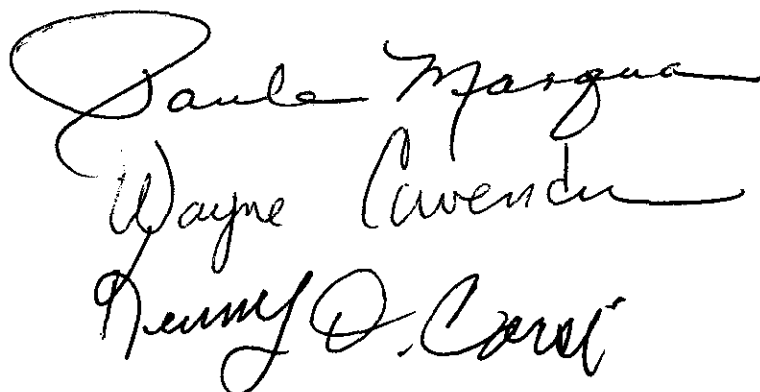 Paula Marqua
Wayne Cavender
Kenny D.